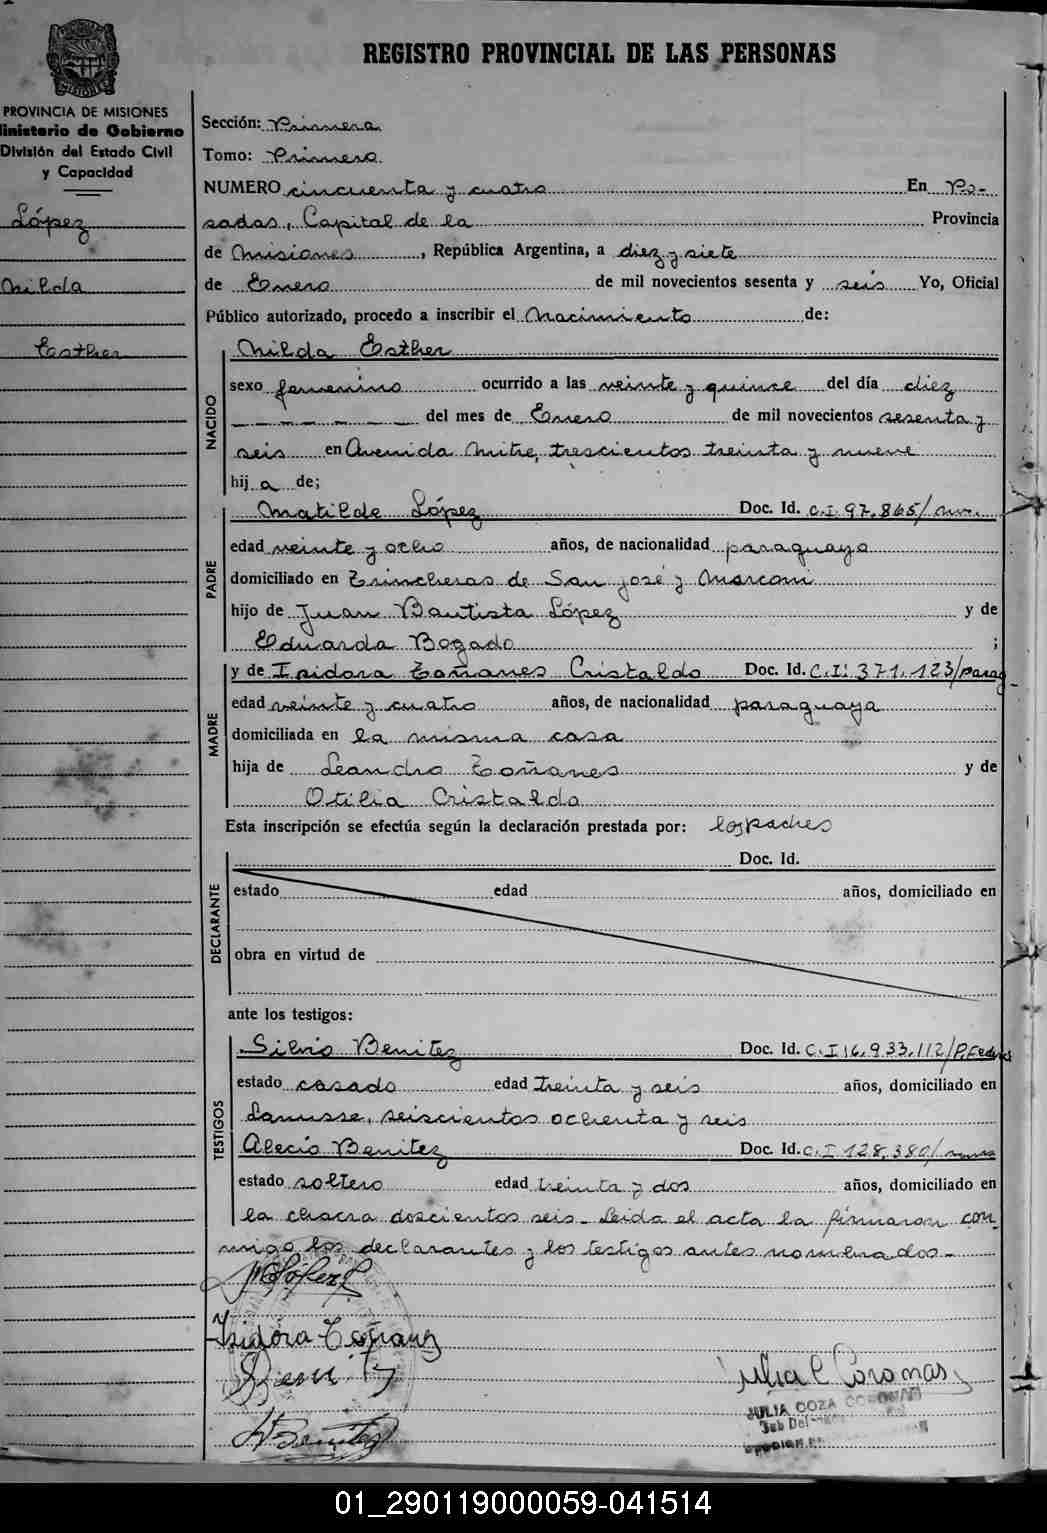 REGISTRO PROVINCIAL DE LAS PERSONAS
PROVINCIA DE MISIONES
inisterio de Gobierno
División del Estado Civil
y Capacidad
López
Nilda
Esther
Sección: Primera
Tomo: Primero
NUMERO cincuenta y cuatro En Po-
sadas, Capital de la Provincia
de Misiones, República Argentina, a diez y siete
de Enero de mil novecientos sesenta y seis Yo, Oficial
Público autorizado, procedo a inscribir el Nacimiento de:
NACIDO
Nilda Esther
sexo femenino ocurrido a las veinte y quince del día diez
del mes de Enero de mil novecientos sesenta y
seis en Avenida Mitre, trescientos treinta y nueve
hij a de;
PADRE
Matilde López Doc. Id. C.I. 97.865/
edad veinte y ocho años, de nacionalidad paraguayo
domiciliado en Trincheras de San José y Marconi
hijo de Juan Bautista López y de
Eduarda Bogado ;
MADRE
y de Isidora Toñanes Cristaldo Doc. Id. C.I. 371.123/parag
edad veinte y cuatro años, de nacionalidad paraguaya
domiciliada en la misma casa
hija de Leandro Toñanes y de
Otilia Cristaldo
Esta inscripción se efectúa según la declaración prestada por: los padres
DECLARANTE
Doc. Id.
estado edad años, domiciliado en
obra en virtud de
ante los testigos:
TESTIGOS
Silvio Benitez Doc. Id. C.I 6.933.112/P.Federal
estado casado edad treinta y seis años, domiciliado en
Lanusse, seiscientos ochenta y seis
Alecio Benitez Doc. Id. C.I 128.380/
estado soltero edad treinta y dos años, domiciliado en
la chacra doscientos seis. Leida el acta la firmaron con-
migo los declarantes y los testigos antes nombrados.-
M López
Isidora Toñanez
Benitez
Benitez
Julia C Coronas
JULIA COZA CORONAS
01_290119000059-041514